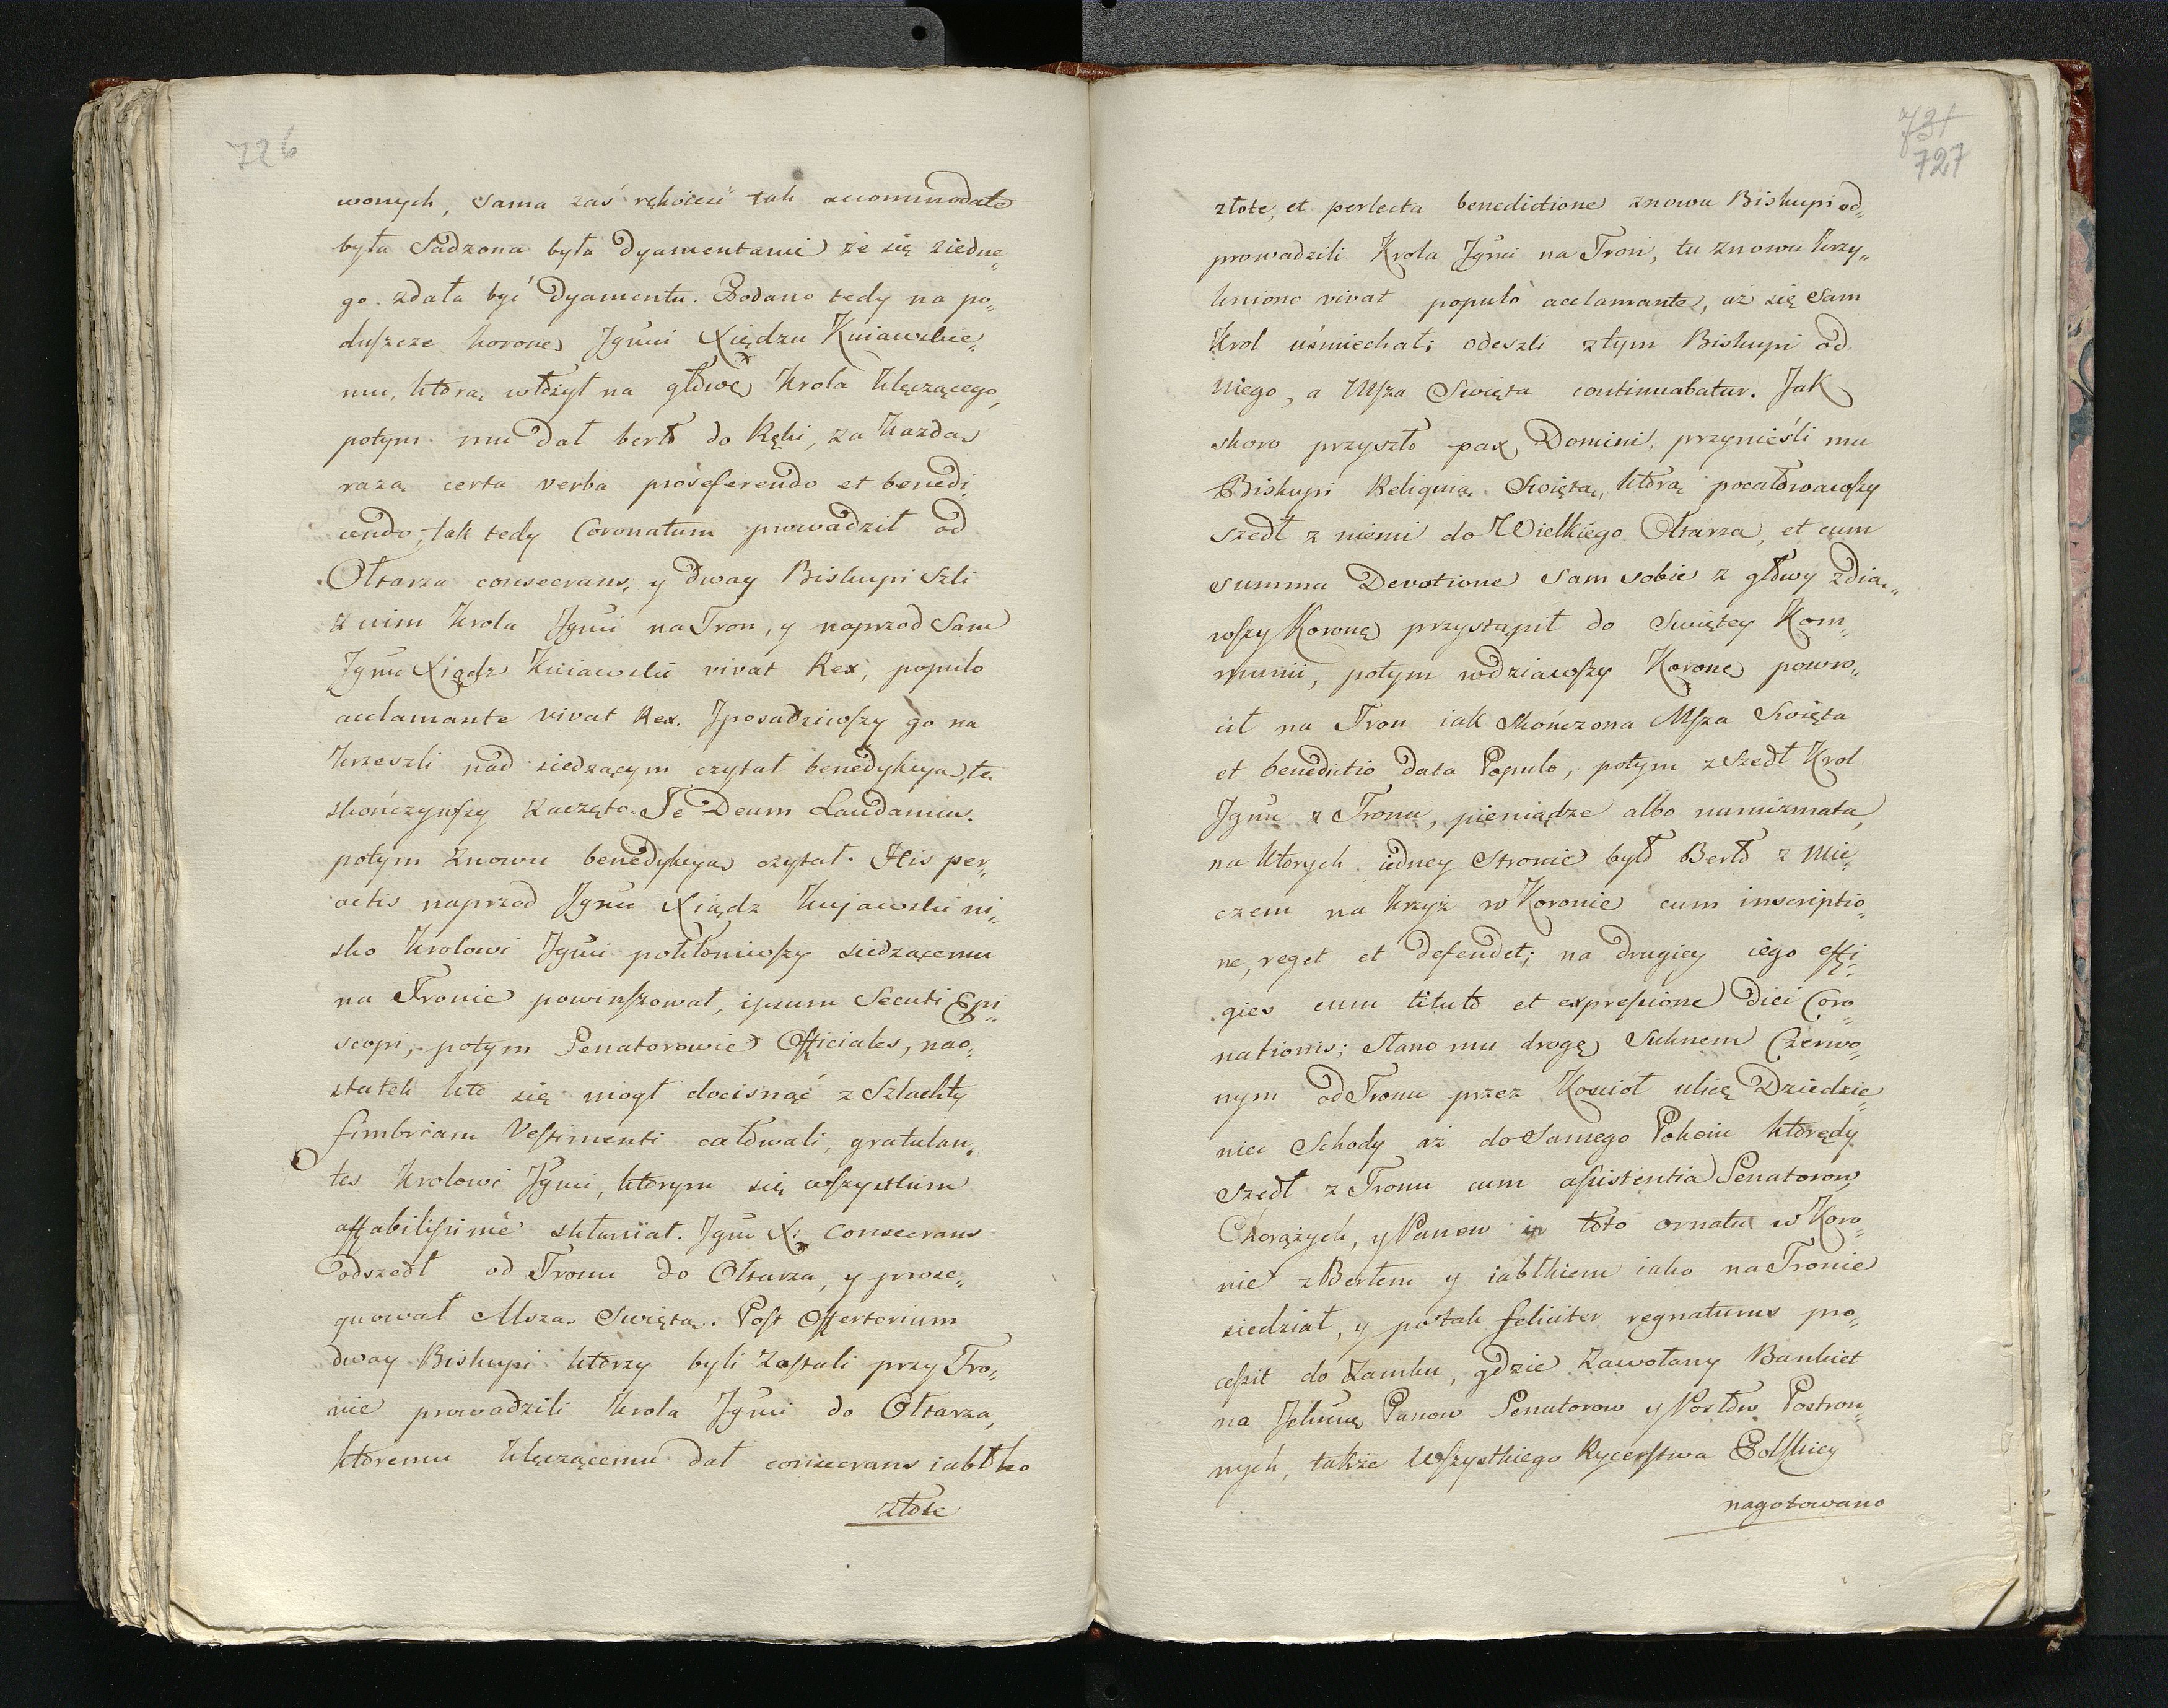 726
wonych, sama zaś rękoieść tak accommodate
była Sadzona była Dyamentami że się ziedne„
go zdała być Dyamentu. Podano tedy na po„
duszcze korone Jgmci Xiędzu Kuiawskie„
mu, ktorą włożył na głowę Krola Klęczącego,
potym mu dał berło do Ręki, za kazdą
razą certa verba proferendo et benedi„
cendo, tak tedy Coronatum prowadził od
Ołtarza consecrans, y dway Biskupi szli
z nim Krola Jgmci na Tron, y naprzod Sam
Jgmc Xiądz Kuiawski vivat Rex, populo
acclamante vivat Rex. Jposadziwszy go na
krzeszli nad siedzącym czytał benedykcyą, tę
skończywszy zaczęto Te Deum Laudamus.
potym znowu benedykcyą czytał. His per„
actis naprzod Jgmc Xiądz Kujawski ni„
sko Krolowi Jgmci pokłoniwszy siedzącemu
na Tronie powinszował, ipsum Secuti Epi„
scopi, potym Senatorowie Officiales, nao„
statek kto się mogł docisnąć z Szlachty
fimbriam Vestimenti całowali, gratulan„
tes Krolowi Jgmci, ktorym się wszystkim
affabilissimè skłaniał. Jgmc X: consecrans
odszedł od Tronu do Ołtarza, y prose„
quował Mszą Swiętą. Post Offertorium
dway Biskupi ktorzy byli zastali przy Tro„
nie prowadzili Krola Jgmci do Ołtarza,
ktoremu klęczącemu dał consecrans iabłko
złote
731
727
złote, et perlecta benedictione znowu Biskupi od„
prowadzili Krola Jgmci na Tron, tu znowu krzy„
kniono vivat populo acclamante, aż się sam
Krol uśmiechał; odeszli z tym Biskupi od
niego, a Msza Swięta continuabatur. Jak
skoro przyszło pax Domini, przynieśli mu
Biskupi Reliquią Swiętą, ktorą pocałowawszy
szedł z niemi do Wielkiego Ołtarza, et cum
summa Devotione sam sobie z głowy zdią„
wszy Koronę przystąpił do Swiętey Kom„
munii, potym wdziawszy Koronę powro„
cił na Tron iak skończona Msza Swięta
et benedictio data Populo, potym zszedł Krol
Jgmc z Tronu, pieniądze albo numizmata,
na ktorych iedney stronie było Berło z Mie„
czem na krzyż w Koronie cum inscriptio„
ne, reget et defendet; na drugiey iego effi„
gies cum titulo et expressione Diei Coro„
nationis; słano mu drogę Suknem Czerwo„
nym od Tronu przez Kosciół ulicę Dziedzie„
niec Schody aż do samego Pokoiu ktorędy
szedł z Tronu cum assistentia Senatorow
Chorążych, y Panow in toto ornatu w Koro„
nie z Berłem y iabłkiem iako na Tronie
siedział, y potak feliciter regnaturus pro„
cessit do Zamku, gdzie zawołany Bankiet
na Jchmc Panow Senatorow y Posłow Postron„
nych, także Wszystkiego Rycerstwa Polskiey
nagotowano